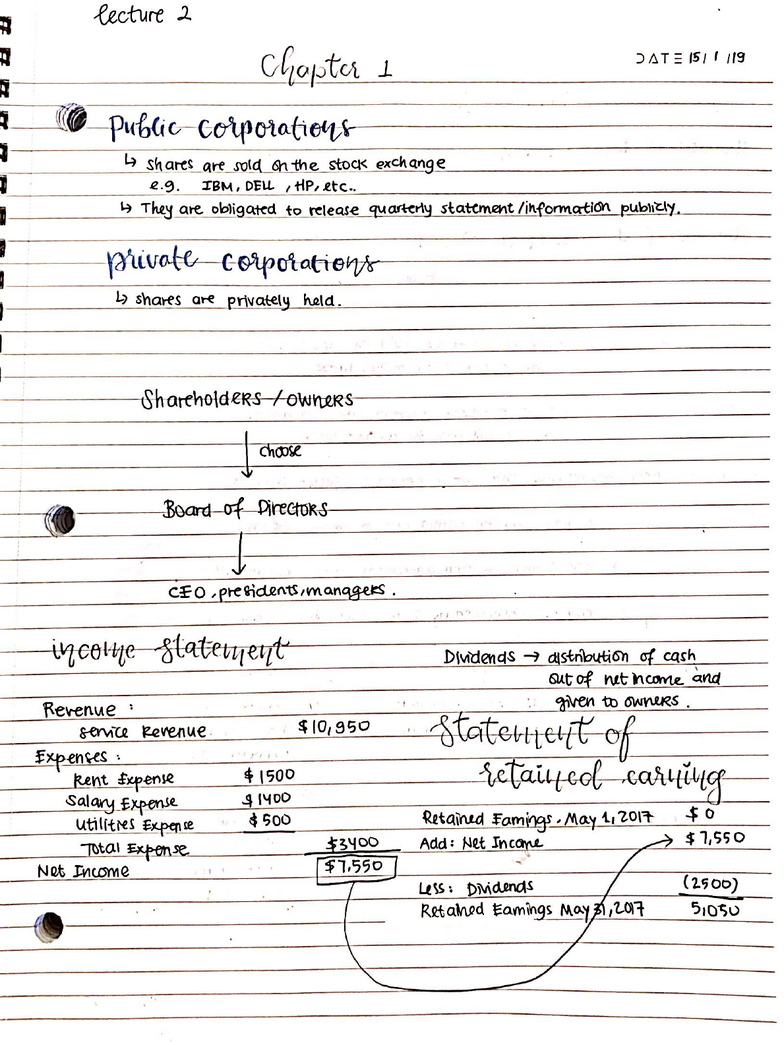 lecture 2
Chapter 1
DATE 15/1/19
Public corporations
↳ shares are sold on the stock exchange
e.g. IBM, DELL, HP, etc..
↳ They are obligated to release quarterly statement/information publicly.
private corporations
↳ shares are privately held.
Shareholders/owners
↓ choose
Board of Directors
↓
CEO, presidents, managers.
income statement
Revenue :
service Revenue $10,950
Expenses :
Rent Expense $1500
Salary Expense $1400
Utilities Expense $500
Total Expense $3400
Net Income $7,550
Dividends → distribution of cash
out of net income and
given to owners.
Statement of
retained earning
Retained Earnings. May 1, 2017 $0
Add: Net Income $7,550
Less: Dividends (2500)
Retained Earnings May 31, 2017 5,050